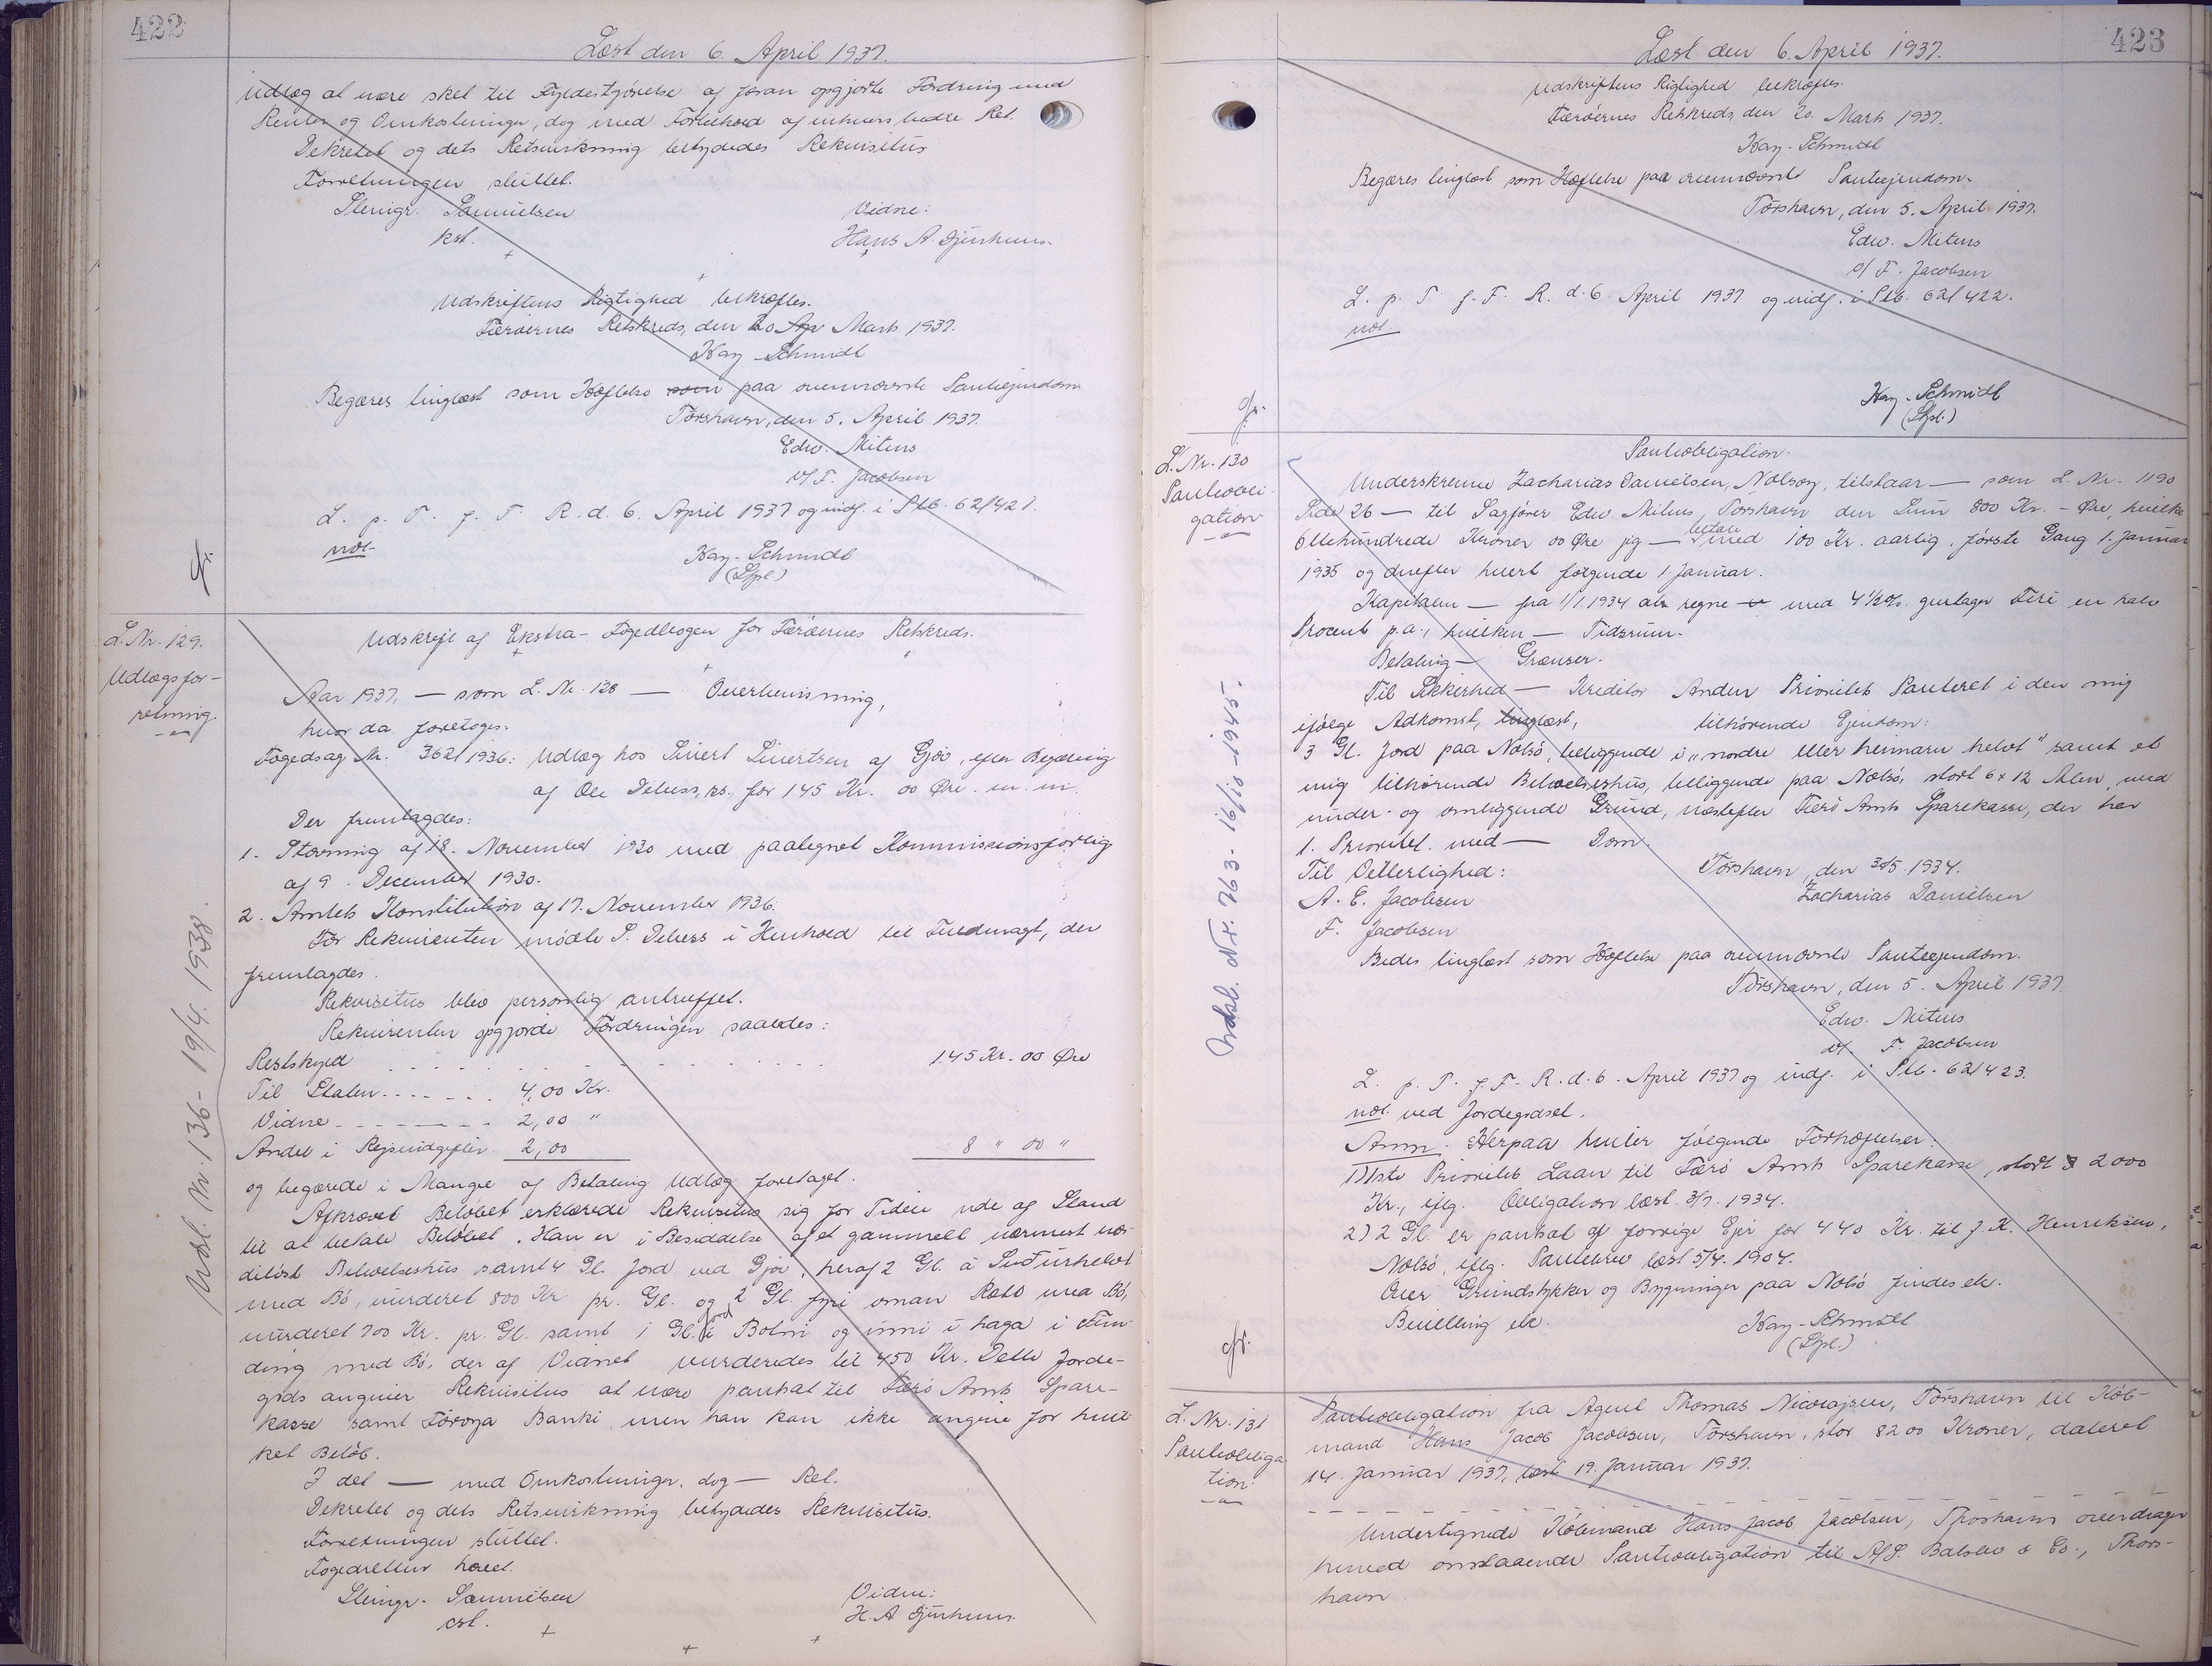 422
Læst den 6. April 1937.
Udlæg at være sket til Fyldestgørelse af foran opgjorte Fordring med
Renter og Omkostninger, dog med Forbehold af enhvers bedre Ret.
Dekretet og dets Retsvirkning betydedes Rekvisitus
Forretningen sluttet.
Steingr. Samuelsen Vidne:
kst. Hans A. Djurhuus.
Udskriftens Rigtighed bekræftes.
Færøernes Retskreds, den 20 Apr Marts 1937.
Kay-Schmidt
Begæres tinglæst som Hæftelse som paa ovennævnte Panteejendom
Tórshavn, den 5. April 1937.
Edw. Mitens
v/ F. Jacobsen
L. p. T. f. F. R. d. 6. April 1937 og indf. i Ptb. 62/421.
not. Kay-Schmidt
(Spl.)
fr.
L. Nr. 129.
Udlægsfor-
retning.
Udskrift af Ekstra-Fogedbogen for Færøernes Retskreds.
Aar 1937, — som L. Nr. 128 — Overbevisning,
hvor da foretoges:
Fogedsag Nr. 362/1936: Udlæg hos Sivert Sivertsen af Gjov, efter Begæring
af Ole Debess, rs. for 145 Kr. 00 Øre m. m.
Der fremlagdes:
1. Stævning af 18. November 1930 med paategnet Kommissionsforlig
af 9. December 1930.
2. Amtets Konstitution af 17. November 1936.
For Rekvirenten mødte P. Debess i Henhold til Fuldmagt, der
fremlagdes.
Rekvisitus blev personlig antruffet.
Rekvirenten opgjorde Fordringen saaledes:
Restskyld 145 Kr. 00 Øre
Til Staten 4,00 Kr.
Vidne 2,00 "
Andel i Rejseudgifter 2,00 8 " 00 "
og begærede i Mangel af Betaling Udlæg foretaget.
Afkrævet Beløbet erklærede Rekvisitus sig for Tiden ude af Stand
til at betale Beløbet. Han er i Besiddelse af et gammelt nærmest vær-
diløst Beboelseshus samt 4 Gl. Jord ved Gjov, heraf 2 Gl. á Suðurhelvt
med Bó, vurderet 800 Kr pr. Gl. og 2 Gl. fyri oman Ráso med Bó,
vurderet 700 Kr. pr. Gl. samt 1 Gl. Jord i Botni og inni i haga i Fun-
ding med Bó, der af Vidnet vurderedes til 450 Kr. Dette Jorde-
gods angiver Rekvisitus at være pantsat til Færø Amts Spare-
kasse samt Føroya Banki, men han kan ikke angive for hvil
ket Beløb.
I det — med Omkostninger, dog — Ret.
Dekretet og dets Retsvirkning betydedes Rekvisitus.
Forretningen sluttet.
Fogedretten hævet.
Steingr. Samuelsen Vidne:
cst. H. A Djurhuus.
Udsl. Nr. 136- 19/4. 1938.
423
Læst den 6. April 1937.
Udskriftens Rigtighed bekræftes.
Færøernes Retskreds, den 20. Marts 1937.
Kay-Schmidt
Begæres tinglæst som Hæftelse paa ovennævnte Panteejendom.
Tórshavn, den 5. April 1937.
Edw. Mitens
v/ F. Jacobsen
L. p. T. f. F. R. d. 6 April 1937 og indf. i Ptb. 62/422.
not.
Kay-Schmidt
(Spl.)
fr.
L. Nr. 130
Pantobli-
gation
Pantobligation.
Underskrevne Zacharias Danielsen, Nolsoy, tilstaar — som L. Nr. 1190
Side 26 — til Sagfører Edw. Mitens, Tórshavn den Sum 800 Kr. - Øre, hvilke
Ottehundrede Kroner 00 Øre jeg — betale med 100 Kr. aarlig, første Gang 1. Januar
1935 og derefter hvert følgende 1. Januar.
Kapitalen — fra 1/1.1934 at regne med 4 1/2 % gentager Fire en halv
Procent p.a., hvilken — Tidsrum.
Betaling — Grænser.
Til Sikkerhed — Kreditor Anden Prioritets Panteret i den mig
ifølge Adkomst, tinglæst, tilhørende Ejendom:
3 Gl. Jord paa Nolsø, beliggende i "nordre eller heimaru helvt" samt et
mig tilhørende Beboelseshus, beliggende paa Nolsø, stort 6 x 12 Alen, med
under- og omliggende Grund, næstefter Færø Amts Sparekasse, der har
1. Prioritet med — Dom.
Til Vitterlighed: Tórshavn, den 30/5. 1934.
A. E. Jacobsen Zacharias Danielsen
F. Jacobsen
Bedes tinglæst som Hæftelse paa ovennævnte Panteejendom.
Tórshavn, den 5. April 1937.
Edw. Mitens
v/. F. Jacobsen
L. p. T. f. F. R. d. 6. April 1937 og indf. i Ptb. 62/423.
not. ved Jordegodset.
Anm. Herpaa hviler følgende Forhæftelser:
1) 1ste Prioritets Laan til Færø Amts Sparekasse, stort 2000
Kr., iflg. Obligation læst 3/7. 1934.
2) 2 Gl. er pantsat af forrige Ejer for 440 Kr. til J. K. Henriksen,
Nolsø, iflg. Pantebrev læst 5/4. 1904.
Over Grundstykker og Bygninger paa Nolsø findes etc.
Bevilling etc. Kay-Schmidt
(Spl.)
fr.
Udsl. Nr. 763- 16/10-1945.
L. Nr. 131
Pantobliga
tion
Pantobligation fra Agent Thomas Nicolajsen, Tórshavn til Køb-
mand Hans Jacob Jacobsen, Tórshavn, stor 8200 Kroner, dateret
14. Januar 1937, læst 19. Januar 1937.
Undertegnede Købmand Hans Jacob Jacobsen, Thorshavn overdrager
herved omstaaende Pantobligation til A/S. Balslev & Co., Thors-
havn